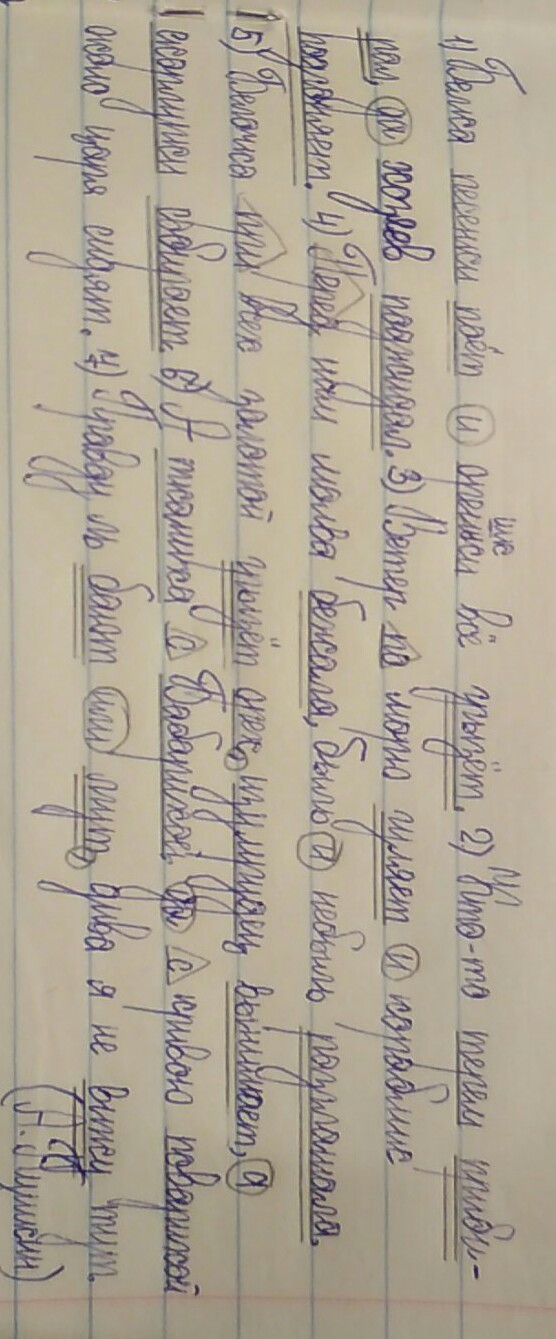 1) Белка песенки поёт и орешки всё грызёт. 2) Кто-то терем прибирал
да хозяев поджидал. 3) Ветер по морю гуляет и кораблик
подгоняет. 4) Перед ними молва бежала, быль и небыль разглашала.
5) Белочка при всех золотой грызёт орех, изумрудец вынимает, а
скорлупки сбирает. 6) А ткачиха с Бабарихой, да с кривою поварихой
около царя сидят. 7) Правду ль бают или лгут, дива я не вижу тут.
(А. Пушкин)